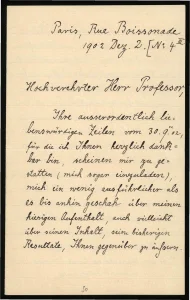 Paris, Rue Boissonade
1902 Dez. 2. [No. 4
Hochverehrter Herr Professor,
Ihre ausserordentlich lie-
benswürdigen Zeilen vom 30.
für die ich Ihnen herzlich dank-
bar bin, scheinen mir zu ge-
statten (mich sogar einzuladen),
mich ein wenig ausführlicher als
es bis anhin geschah über meinen
hiesigen Aufenthalt, auch vielleicht
über seinen Inhalt, seine bisherigen
Resultate, Ihnen gegenüber zu äussern.